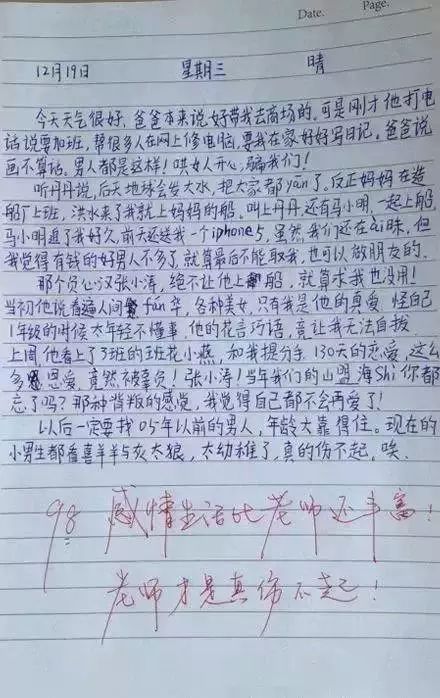 Date. Page.
12月19日 星期三 晴
今天天气很好，爸爸本来说好带我去商场的，可是刚才他打电
话说要加班，帮很多人在网上修电脑，要我在家好好写日记。爸爸说
画不算话。男人都是这样！哄女人开心，骗我们！
听丹丹说，后天地球会发大水，把大家都yān了。反正妈妈在造
船厂上班，洪水来了我就上妈妈的船。叫上丹丹，还有马小明，一起上船，
马小明追了我好久，前天还送我一个iphone5，虽然我们还在ài昧，但
我觉得有钱的好男人不多了，就算最后不能取我，也可以做朋友的。
那个负心汉张小涛，绝不让他上船，就算求我也没用！
当初他说看遍人间fán华，各种美女，只有我是他的真爱，怪自己
1年级的时候太年轻不懂事，他的花言巧语，竟让我无法自拔
上周他看上了3班的班花小燕，和我提分手，130天的恋爱，这么
多恩爱，竟然被辜负！张小涛！当年我们的山盟海Shì你都
忘了吗？那种背叛的感觉，我觉得自己都不会再爱了！
以后一定要找05年以前的男人，年龄大靠得住。现在的
小男生都看喜羊羊与灰太狼，太幼稚了，真的伤不起，唉、
98 感情生活比老师还丰富！
老师才是真伤不起！